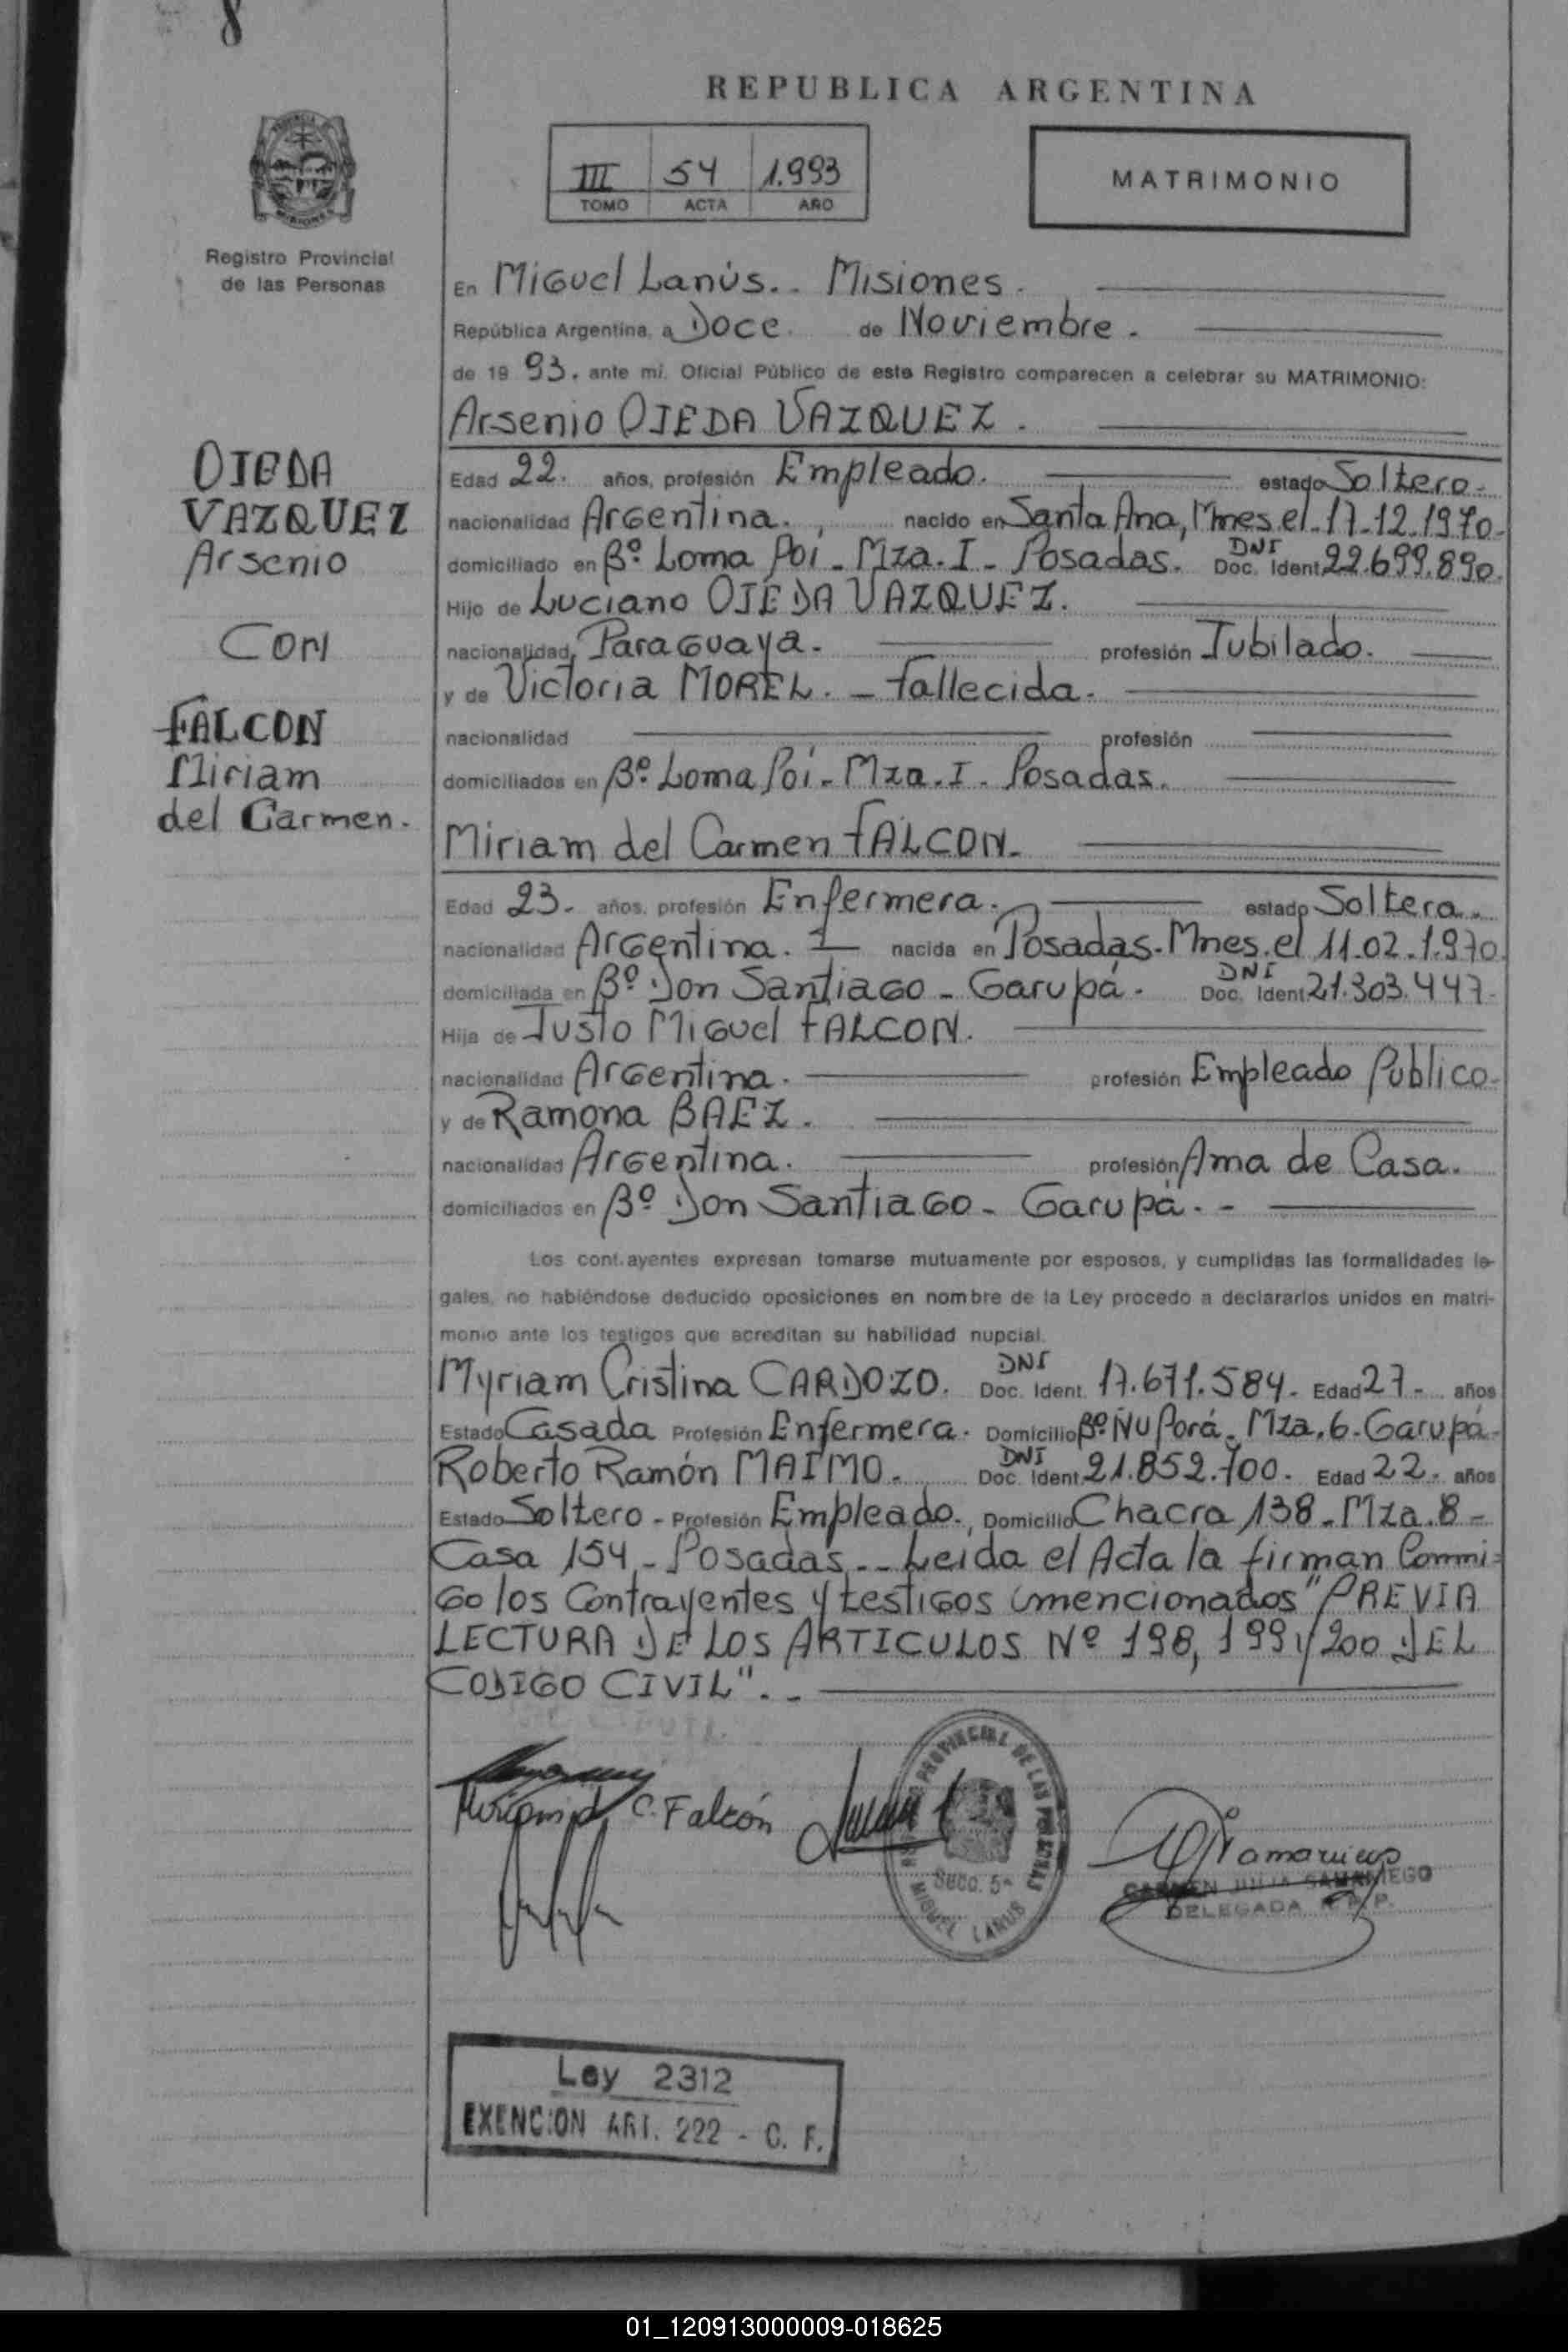 8
REPUBLICA ARGENTINA
III 54 1.993
TOMO ACTA AÑO
MATRIMONIO
PROVINCIA
MISIONES
Registro Provincial
de las Personas
En Miguel Lanús.. Misiones.
República Argentina, a Doce. de Noviembre.
de 19 93. ante mí, Oficial Público de este Registro comparecen a celebrar su MATRIMONIO:
Arsenio OJEDA VAZQUEZ.
OJEDA
VAZQUEZ
Arsenio
CON
FALCON
Miriam
del Carmen.
Edad 22. años, profesión Empleado. estado Soltero.
nacionalidad Argentina. nacido en Santa Ana, Mnes. el 17-12.1970.
domiciliado en Bº Loma Poi - Mza. I - Posadas. DNI Doc. Ident 22.699.890.
Hijo de Luciano OJEDA VAZQUEZ.
nacionalidad Paraguaya. profesión Jubilado.
y de Victoria MOREL. - fallecida.
nacionalidad profesión
domiciliados en Bº Loma Poi - Mza. I - Posadas.
Miriam del Carmen FALCON.
Edad 23. años, profesión Enfermera. estado Soltera.
nacionalidad Argentina. nacida en Posadas. Mnes. el 11-02.1.970.
domiciliada en Bº Don Santiago - Garupá. DNI Doc. Ident 21.303.447.
Hija de Justo Miguel FALCON.
nacionalidad Argentina. profesión Empleado Público.
y de Ramona BAEZ.
nacionalidad Argentina. profesión Ama de Casa.
domiciliados en Bº Don Santiago - Garupá. -
Los contrayentes expresan tomarse mutuamente por esposos, y cumplidas las formalidades le-
gales, no habiéndose deducido oposiciones en nombre de la Ley procedo a declararlos unidos en matri-
monio ante los testigos que acreditan su habilidad nupcial.
Myriam Cristina CARDOZO. DNI Doc. Ident. 17.671.584. Edad 27. años
Estado Casada Profesión Enfermera. Domicilio Bº Ñu Porá. Mza. 6 - Garupá.
Roberto Ramón MAIMO. DNI Doc. Ident. 21.852.700. Edad 22. años
Estado Soltero - Profesión Empleado., Domicilio Chacra 138 - Mza. 8 -
Casa 154 - Posadas. - Leida el Acta la firman Conmi=
go los Contrayentes y testigos mencionados "PREVIA
LECTURA DE LOS ARTICULOS Nº 198, 199 y 200 DEL
CODIGO CIVIL". -
Miriam d C. Falcón
PROVINCIAL DE LAS PERSONAS
Secc. 5ª
MIGUEL LANUS
CARMEN JULIA SAMANIEGO
DELEGADA R. P. P.
Ley 2312
EXENCION ART. 222 - C. F.
01_120913000009-018625